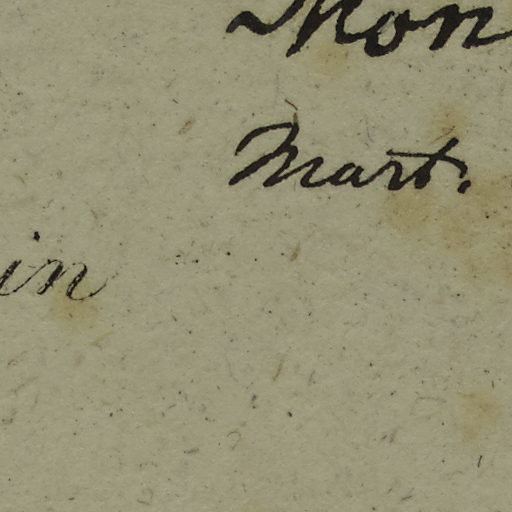 Mon
Mart.
in